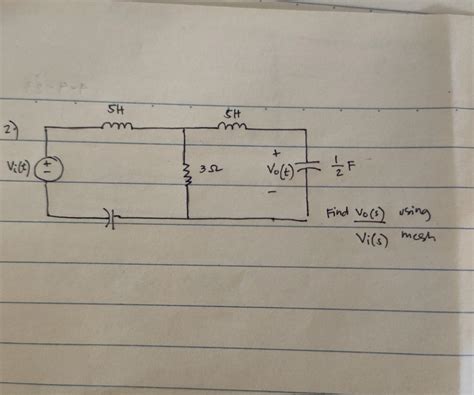 5H 5H
2)
Vi(t) + - 3Ω + Vo(t) - 1/2 F
Find Vo(s)/Vi(s) using mesh